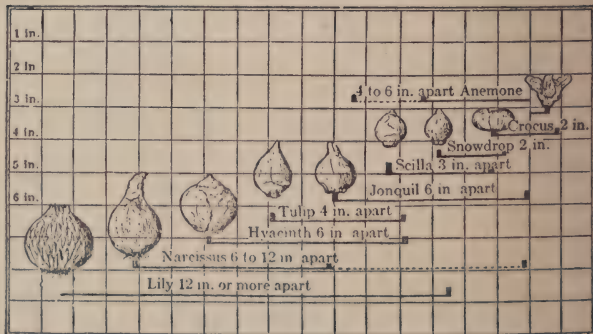 1 in.
2 in
3 in.
4 to 6 in. apart Anemone
Crocus 2 in.
4 in.
Snowdrop 2 in.
5 in.
Scilla 3 in. apart
Jonquil 6 in apart
6 in.
Tulip 4 in. apart
Hyacinth 6 in apart
Narcissus 6 to 12 in apart
Lily 12 in. or more apart